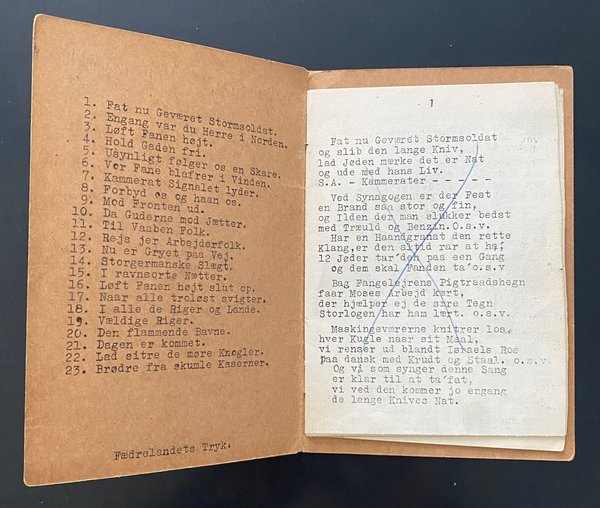 1. Fat nu Geværet Stormsoldat.
2. Engang var du Herre i Norden.
3. Løft Fanen højt.
4. Hold Gaden fri.
5. Usynligt følger os en Skare.
6. Vor Fane blafrer i Vinden.
7. Kammerat Signalet lyder.
8. Forbyd os og haan os.
9. Mod Fronten ud.
10. Da Guderne mod Jætter.
11. Til Vaaben Folk.
12. Rejs jer Arbejderfolk.
13. Nu er Gryet paa Vej.
14. Storgermanske Slægt.
15. I ravnsorte Nætter.
16. Løft Fanen højt slut op.
17. Naar alle troløst svigter.
18. I alle de Riger og Lande.
19. Vældige Riger.
20. Den flammende Bavne.
21. Dagen er kommet.
22. Lad sitre de møre Knogler.
23. Brødre fra skumle Kaserner.
Fædrelandets Tryk.
1
Fat nu Geværet Stormsoldat
og slib den lange Kniv,
lad Jøden mærke det er Nat
og ude med hans Liv.
S.A. - Kammerater - - - - - -
Ved Synagogen er der Fest
en Brand saa stor og fin,
og Ilden der man slukker bedst
med Træuld og Benzin.O.s.v.
Har en Haandgranat den rette
Klang,er den altid rar at ha,
12 Jøder tar'den paa een Gang
og dem skal Fanden ta'o.s.v
Bag Fangelejrens Pigtraadshegn
faar Moses Arbejd kært,
der hjælper ej de sure Tegn
Storlogen har ham lært. o.s.v.
Maskingeværerne knitrer los,
hver Kugle naar sit Maal,
vi renser ud blandt Israels Ros
paa dansk med Krudt og Staal. o.s.v.
Og vi som synger denne Sang
er klar til at ta'fat,
vi ved den kommer jo engang
de lange Knives Nat.